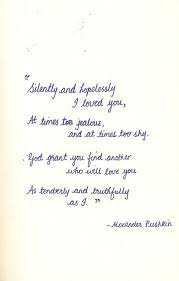 "Silently and hopelessly
I loved you,
At times too jealous,
and at times too shy.
God grant you find another
who will love you
As tenderly and truthfully
as I."
- Alexander Pushkin